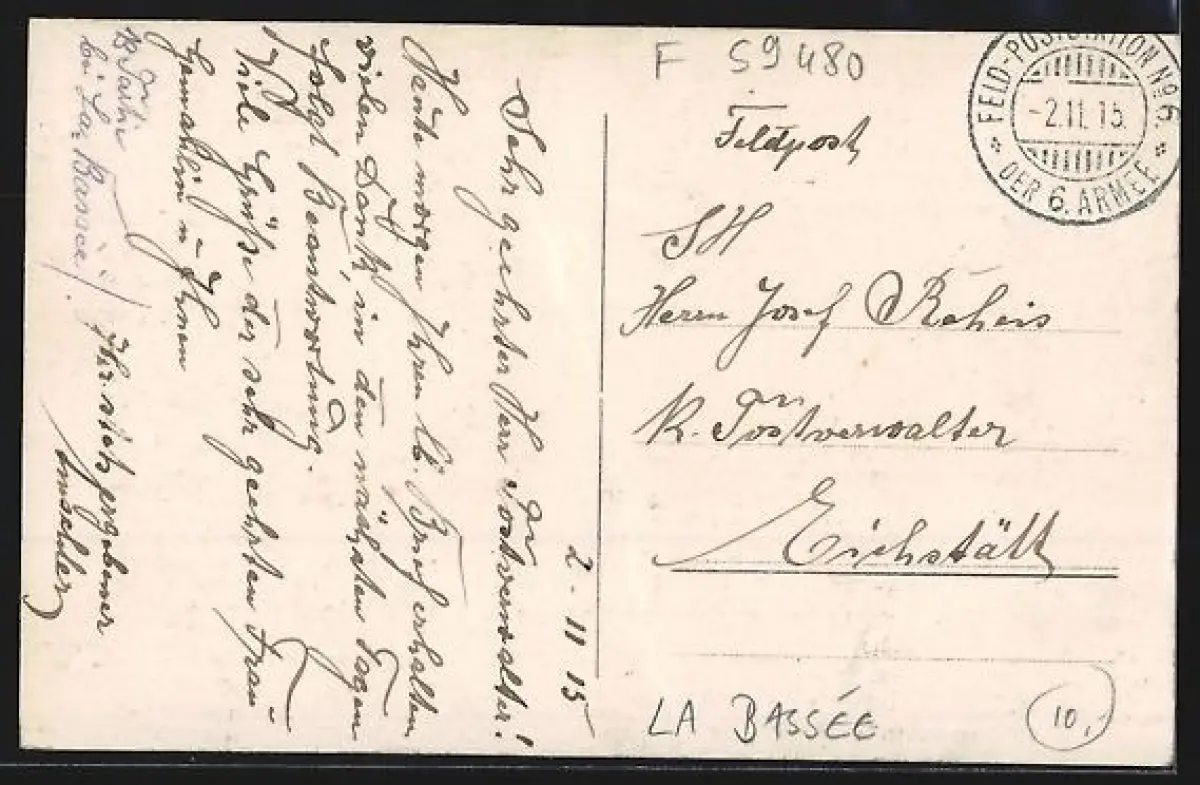 F 59480
FELD-POSTSTATION No 6.
-2.11.15.
* DER 6. ARMEE *
Feldpost
SH
Herrn Josef Reheis
K. Postverwalter
Eichstätt
LA BASSÉE
10,-
2-11 15
Sehr geehrter Herr Postverwalter!
Heute morgen Ihren lb. Brief erhalten
vielen Dank, in den nächsten Tagen
folgt Beantwortung.
Viele Grüße der sehr geehrten Frau
Gemahlin u Ihnen
Ihr. stets ergebener
Partie
bei La Bassée!